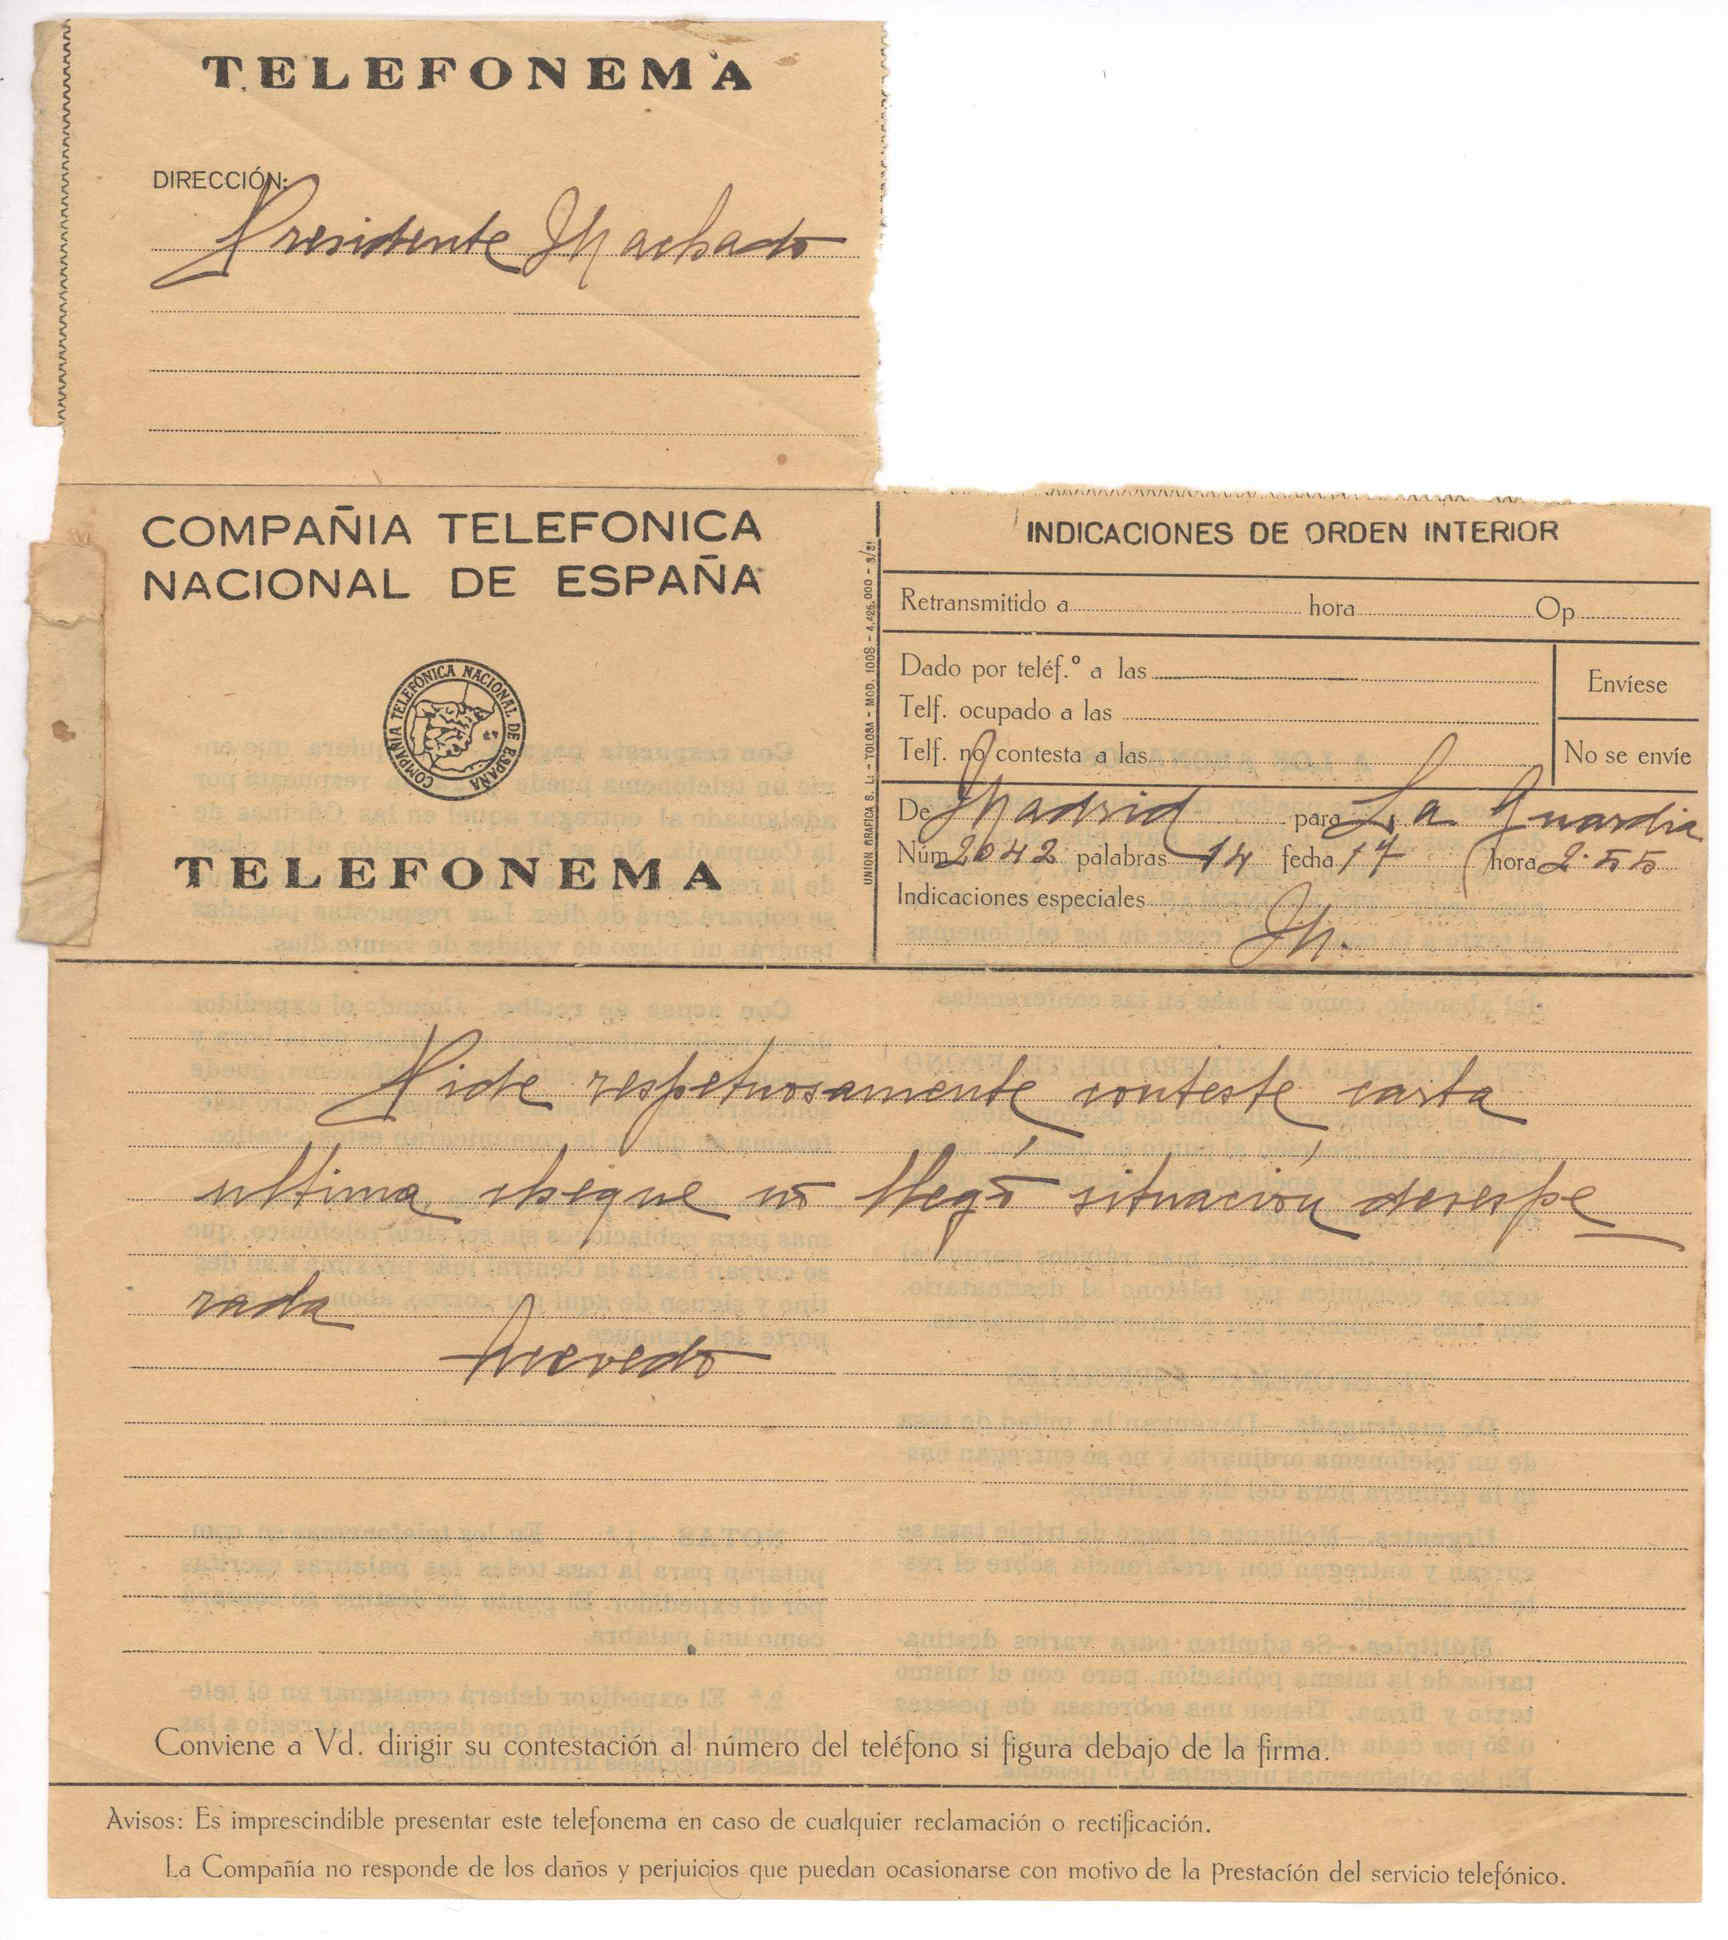 TELEFONEMA
DIRECCIÓN:
Presidente Machado
COMPAÑIA TELEFONICA
NACIONAL DE ESPAÑA
COMPAÑIA TELEFONICA NACIONAL DE ESPAÑA
TELEFONEMA
UNION GRAFICA S. L. - TOLOSA - MOD. 1008 - 4.426.000 - 3/31
INDICACIONES DE ORDEN INTERIOR
Retransmitido a hora Op
Dado por teléf.º a las
Telf. ocupado a las
Telf. no contesta a las
Envíese
No se envíe
De Madrid para La Guardia
Núm 2042 palabras 14 fecha 17 hora 2.55
Indicaciones especiales
M.
Pide respetuosamente conteste carta
ultima cheque no llegó situación desespe
rada
Acevedo
Conviene a Vd. dirigir su contestación al número del teléfono si figura debajo de la firma.
Avisos: Es imprescindible presentar este telefonema en caso de cualquier reclamación o rectificación.
La Compañía no responde de los daños y perjuicios que puedan ocasionarse con motivo de la Prestación del servicio telefónico.